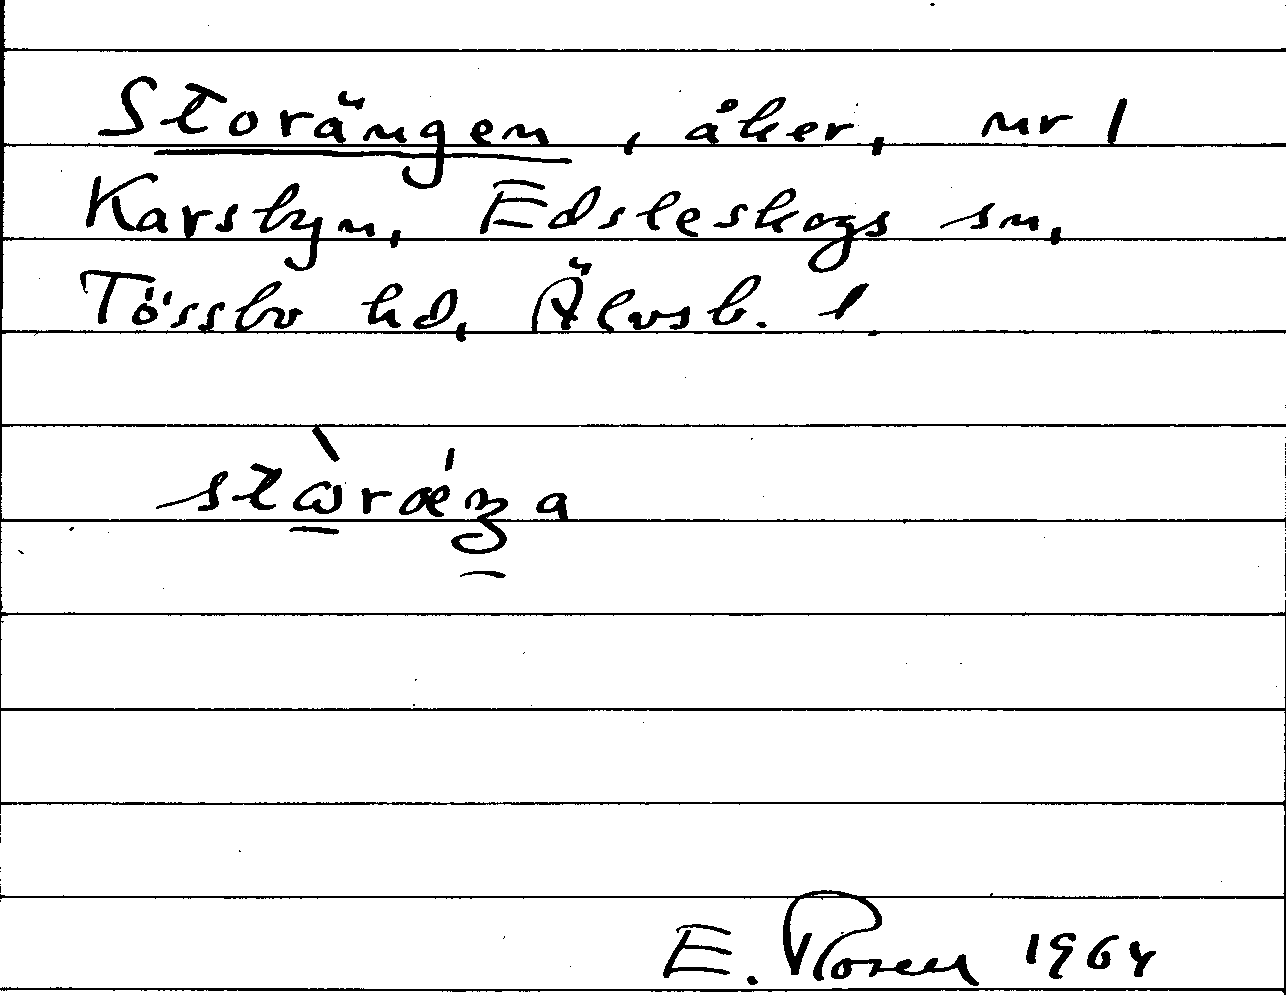 Storängen, åker, nr 1
Karsbyn, Edsleskogs sn,
Tössbo hd, Älvsb. l.
E. Rosen 1964